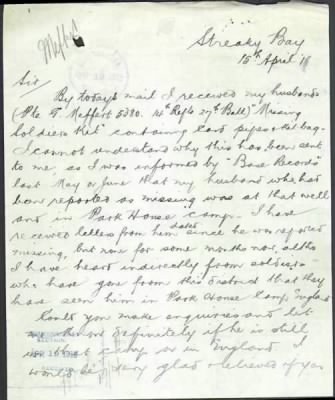 Meffert
Streaky Bay
15th April 18
Sir
By todays mail I received my husbands
(Pte. T. Meffert 5380. 14th Refts 27th Batt) "Missing
Soldiers Kit" containing last pipe & kit bag -
I cannot understand why this has been sent
to me, as I was informed by "Base Records"
last May or June that my husband who had
been reported as missing was at that well
and in Park House camp. I have
received letters from him dated since he was reported
missing, but none for some months now, altho
I have heard indirectly from soldiers
who have gone from this district that they
have seen him in Park House Camp, England
Could you make enquiries and let
me know definitely if he is still
in that camp or in England I
would be very glad & relieved if you